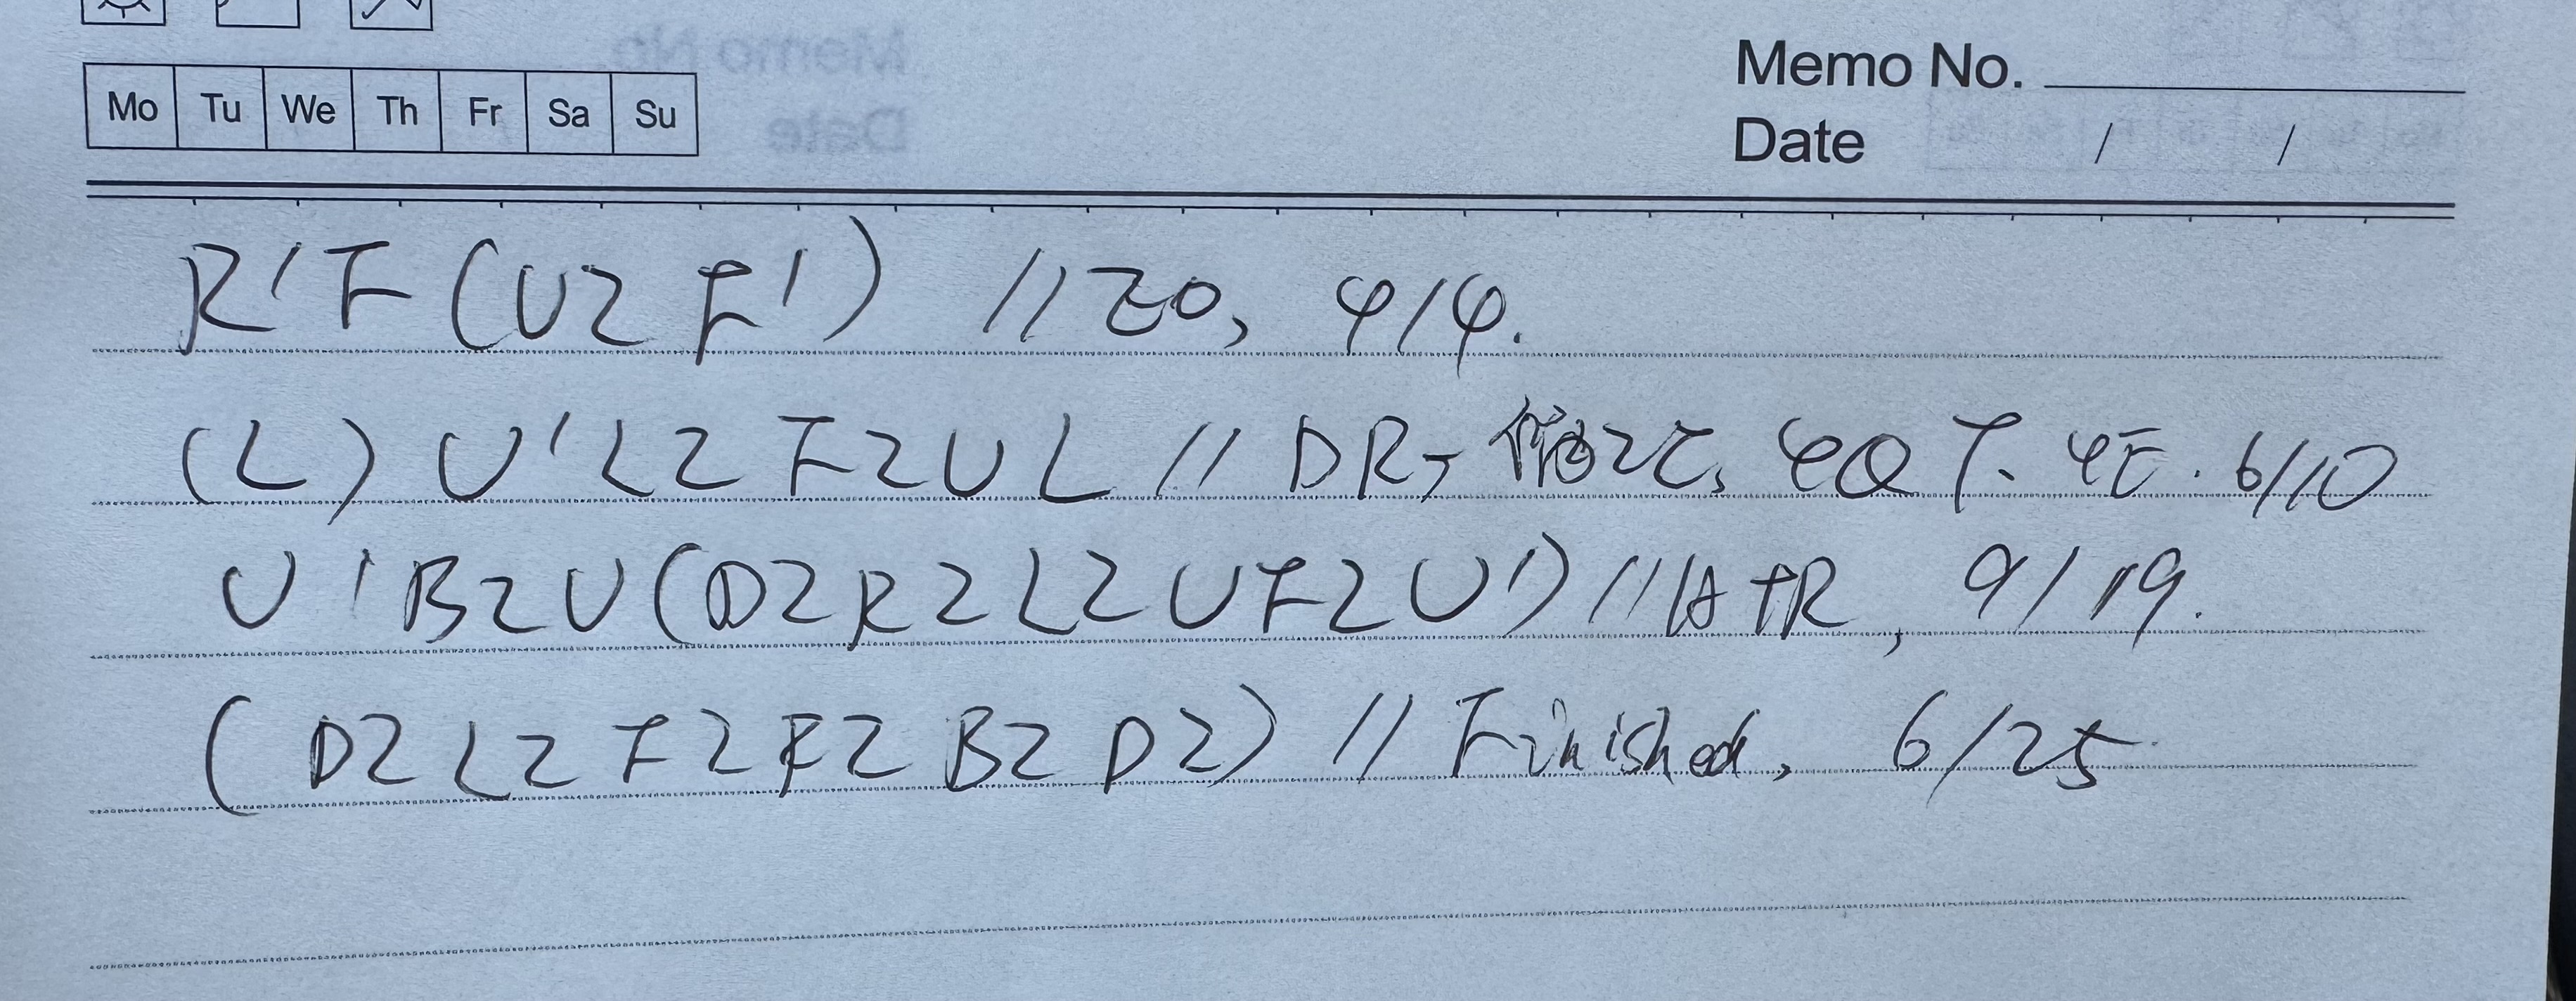 Memo No.
Mo Tu We Th Fr Sa Su
Date / /
R' F (U2 F') // EO, 4/4.
(L) U' L2 F2 U L // DR, 2C, 4QT. 4E. 6/10
U' B2 U (D2 R2 L2 U F2 U') // HTR, 9/19.
(D2 L2 F2 R2 B2 D2) // Finished, 6/25